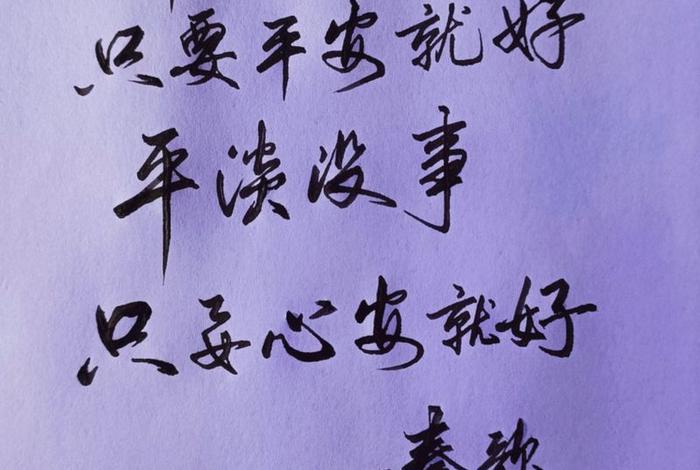 只要平安就好
平淡没事
只要心安就好